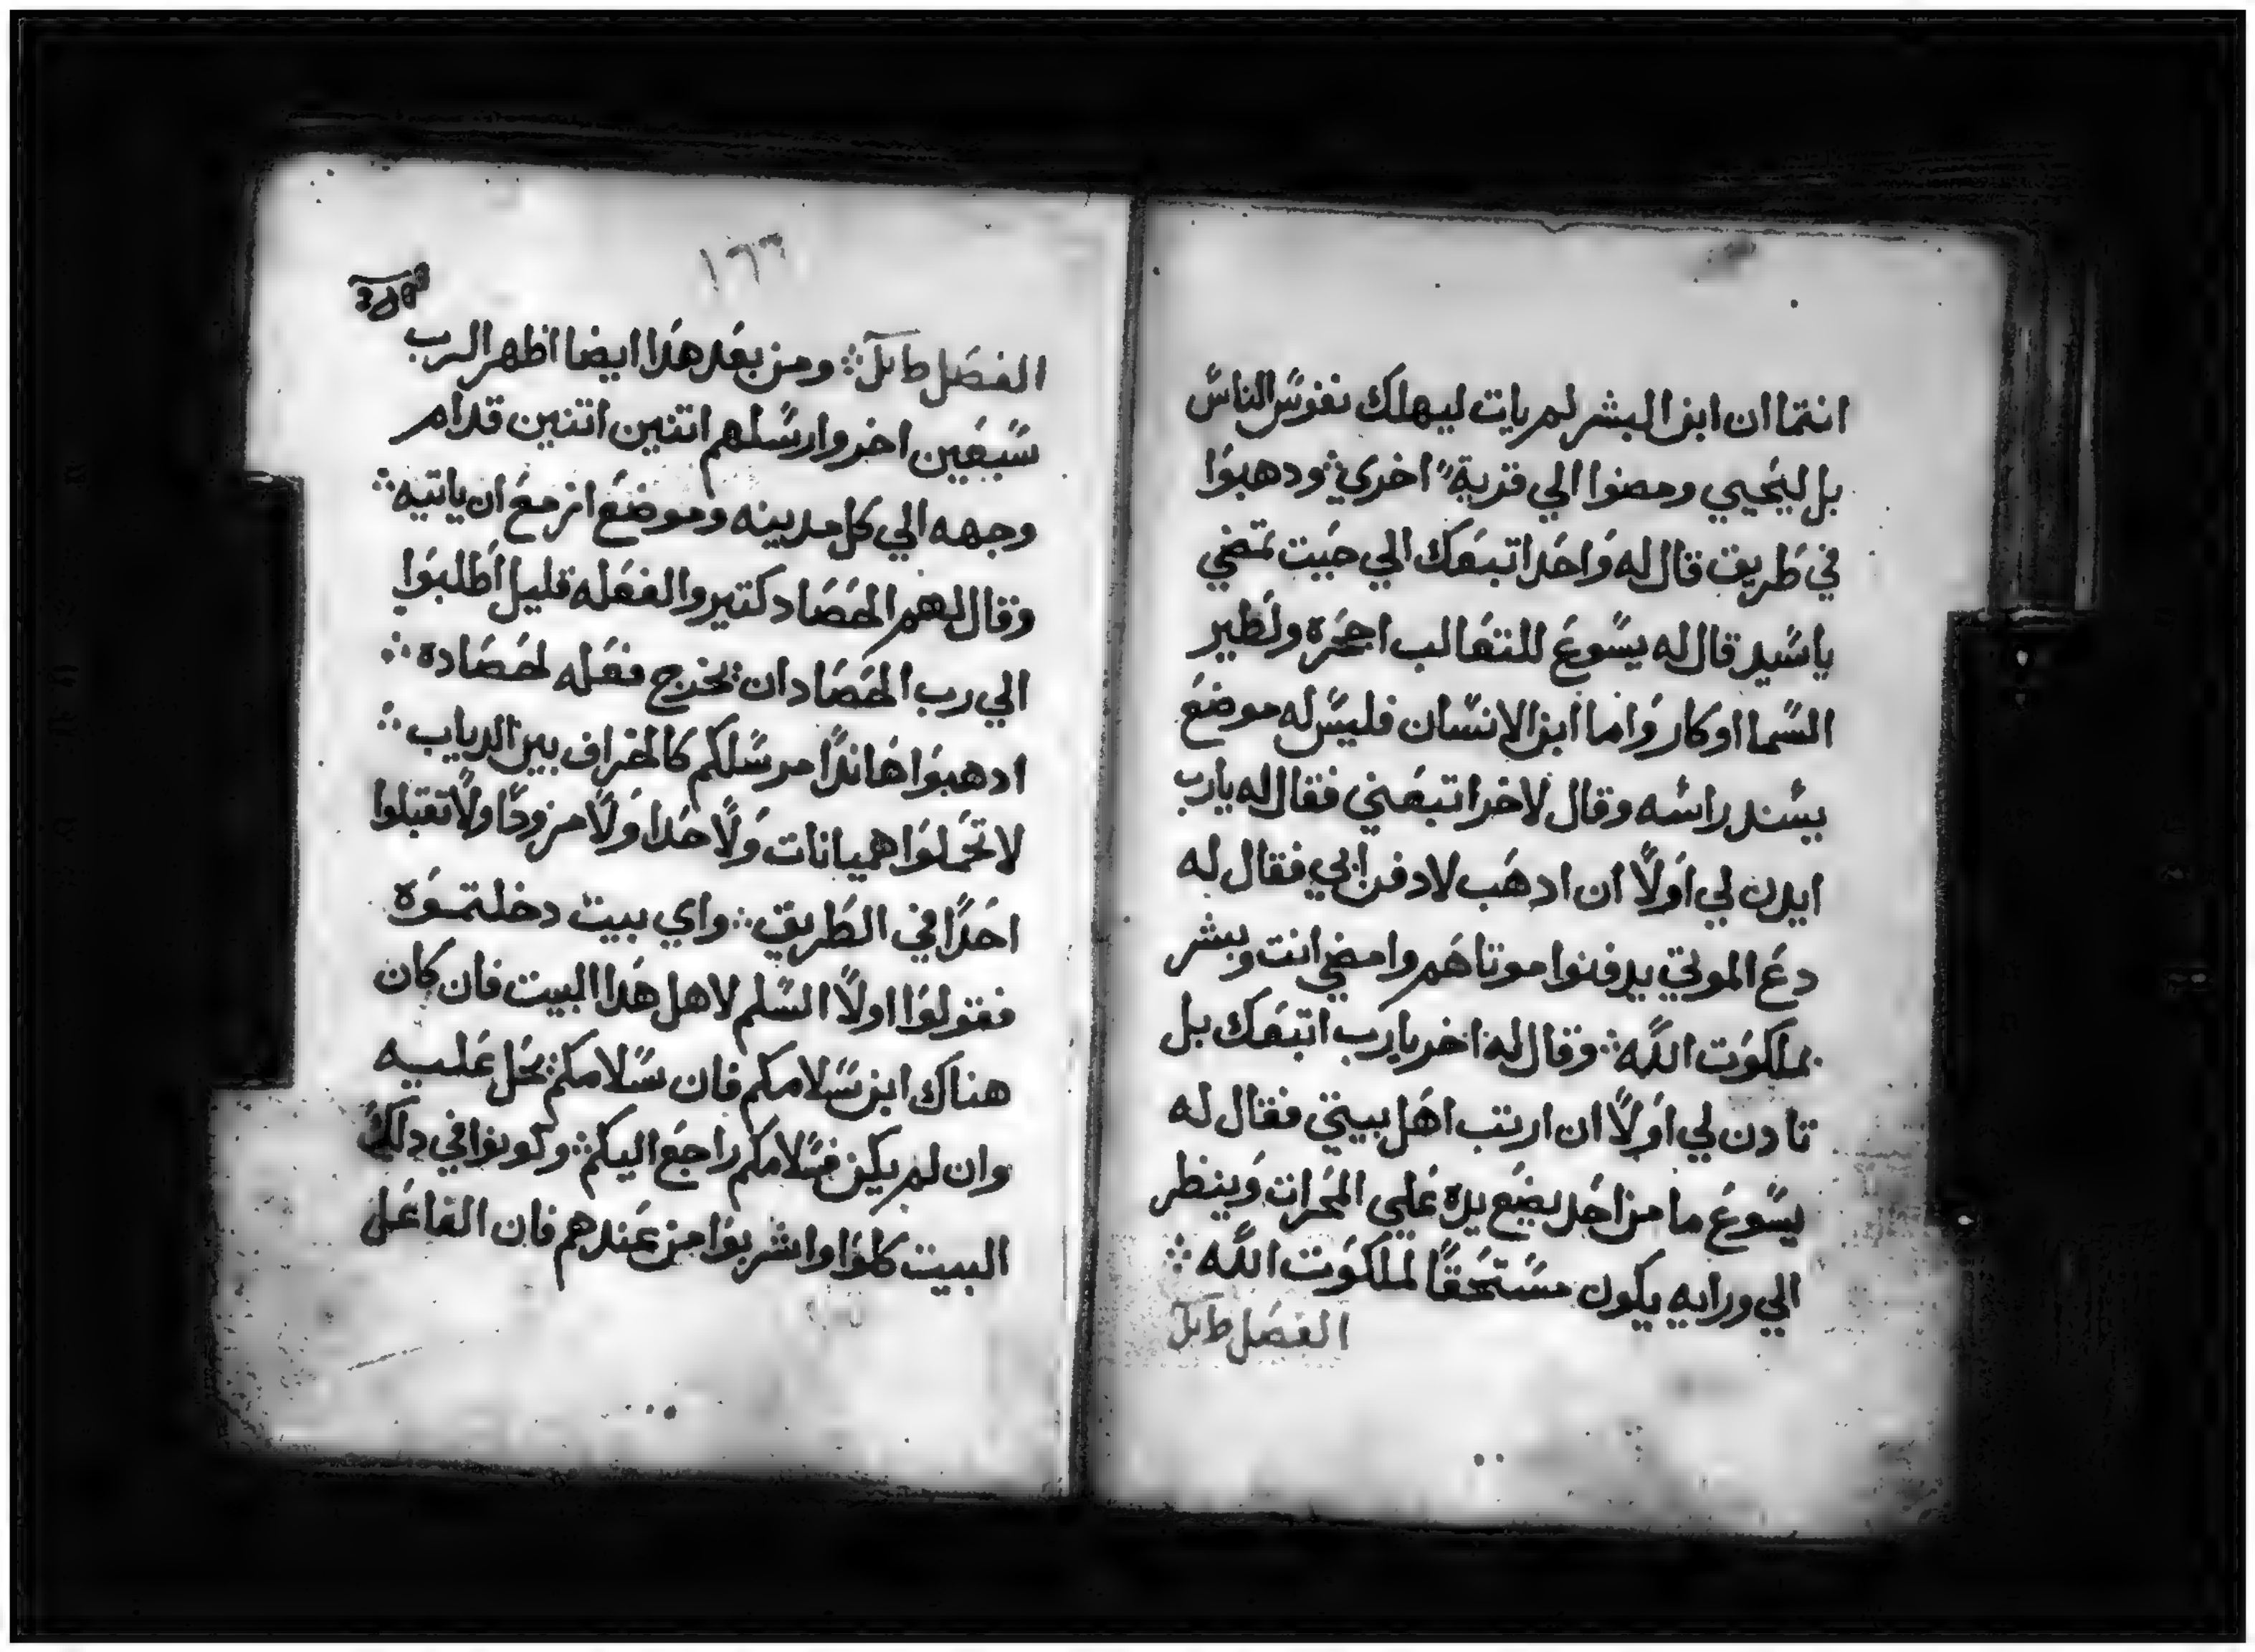 انتما ان ابن البشر لم يات ليهلك نفوس الناس
بل ليحيي ومضوا الي قرية اخري ودهبوا
في طريق قال له واحد اتبعك الي حيت تمضي
ياسيد قال له يسوع للتعالب اجحرة ولطير
السما اوكار واما ابن الانسان فليس له موضع
يسند راسه وقال لاخر اتبعني فقال له يارب
ايدن لي اولا ان ادهب لادفن ابي فقال له
دع الموتي يدفنوا موتاهم وامضي انت وبشر
بملكوت الله وقال له اخر يارب اتبعك بل
تادن لي اولا ان ارتب اهل بيتي فقال له
يسوع ما من احد يضع يده علي المحرات وينظر
الي ورايه يكون مستحقا لملكوت الله
الفصل
١٦٣
الفصل ومن بعد هدا ايضا اظهر الرب
سبعين اخر وارسلهم اتنين اتنين قدام
وجهه الي كل مدينه وموضع ازمع ان ياتيه
وقال لهم الحصاد كتير والفعله قليل اطلبوا
الي رب الحصاد ان يخرج فعله لحصاده
ادهبوا هاندا مرسلكم كالخراف بين الدياب
لا تحملوا هميانات ولا حدا ولا مزودا ولا تقبلوا
احدا في الطريق واي بيت دخلتموه
فقولوا اولا السلم لاهل هدا البيت فان كان
هناك ابن سلامكم فان سلامكم يحل عليه
وان لم يكن فسلامكم راجع اليكم وكونوا في دلك
البيت كلوا واشربوا من عندهم فان الفاعل